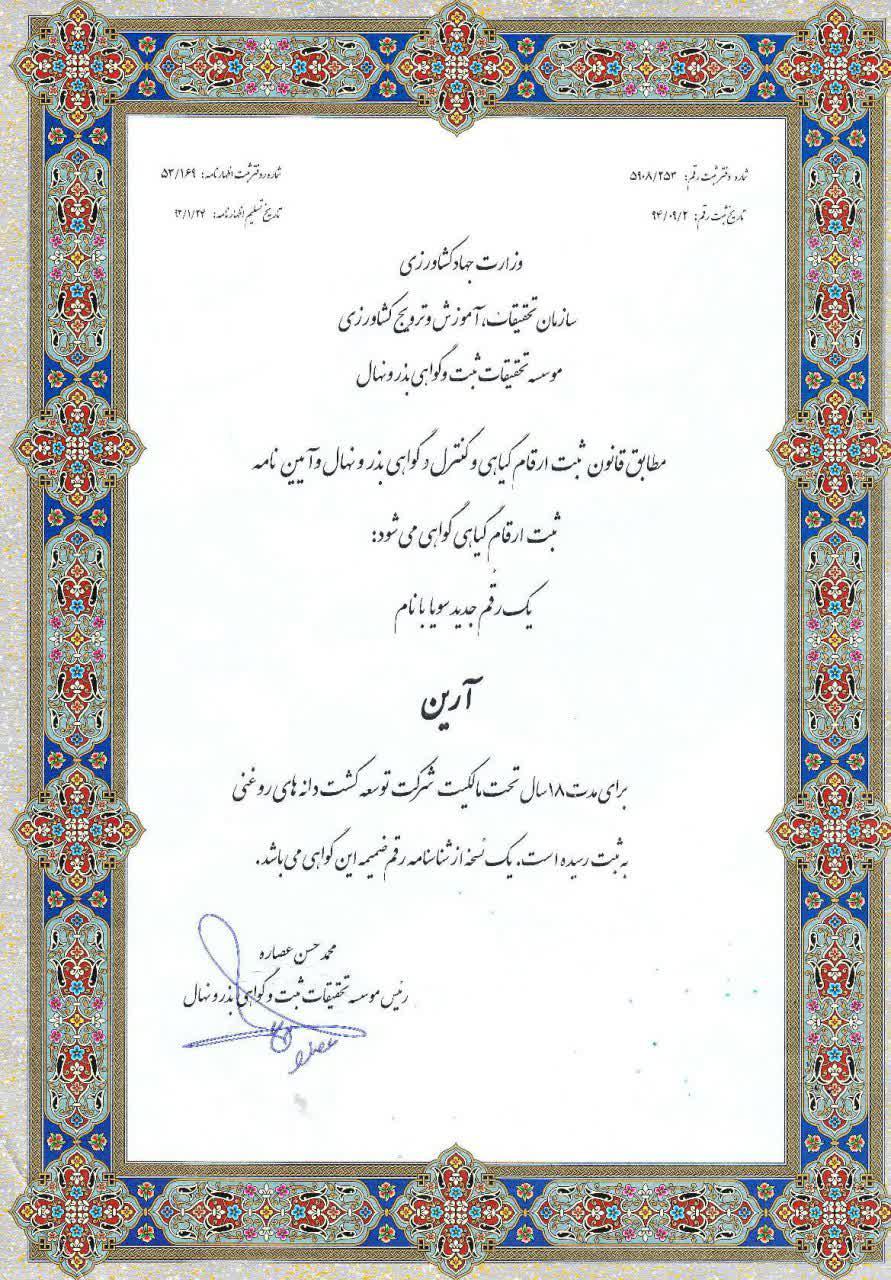 شماره دفتر ثبت رقم: ۵۹۰۸/۲۵۳
شماره دفتر ثبت اظهارنامه: ۵۳/۱۶۹
تاریخ ثبت رقم: ۹۴/۰۹/۲
تاریخ تسلیم اظهارنامه: ۹۲/۱/۲۴
وزارت جهاد کشاورزی
سازمان تحقیقات، آموزش و ترویج کشاورزی
موسسه تحقیقات ثبت و گواهی بذر و نهال
مطابق قانون ثبت ارقام گیاهی و کنترل و گواهی بذر و نهال و آیین نامه
ثبت ارقام گیاهی گواهی می شود:
یک رقم جدید سویا با نام
آرین
برای مدت ۱۸ سال تحت مالکیت شرکت توسعه کشت دانه های روغنی
به ثبت رسیده است. یک نسخه از شناسنامه رقم ضمیمه این گواهی می باشد.
محمد حسن عصاره
رئیس موسسه تحقیقات ثبت و گواهی بذر و نهال